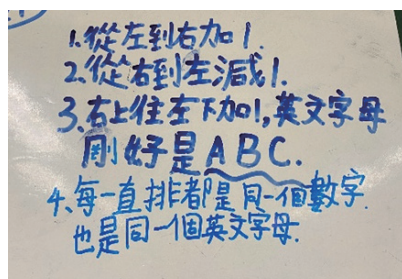 1.從左到右加1.
2.從右到左減1.
3.右上往左下加1,英文字母
剛好是ABC.
4、每一直排都是同一個數字.
也是同一個英文字母.